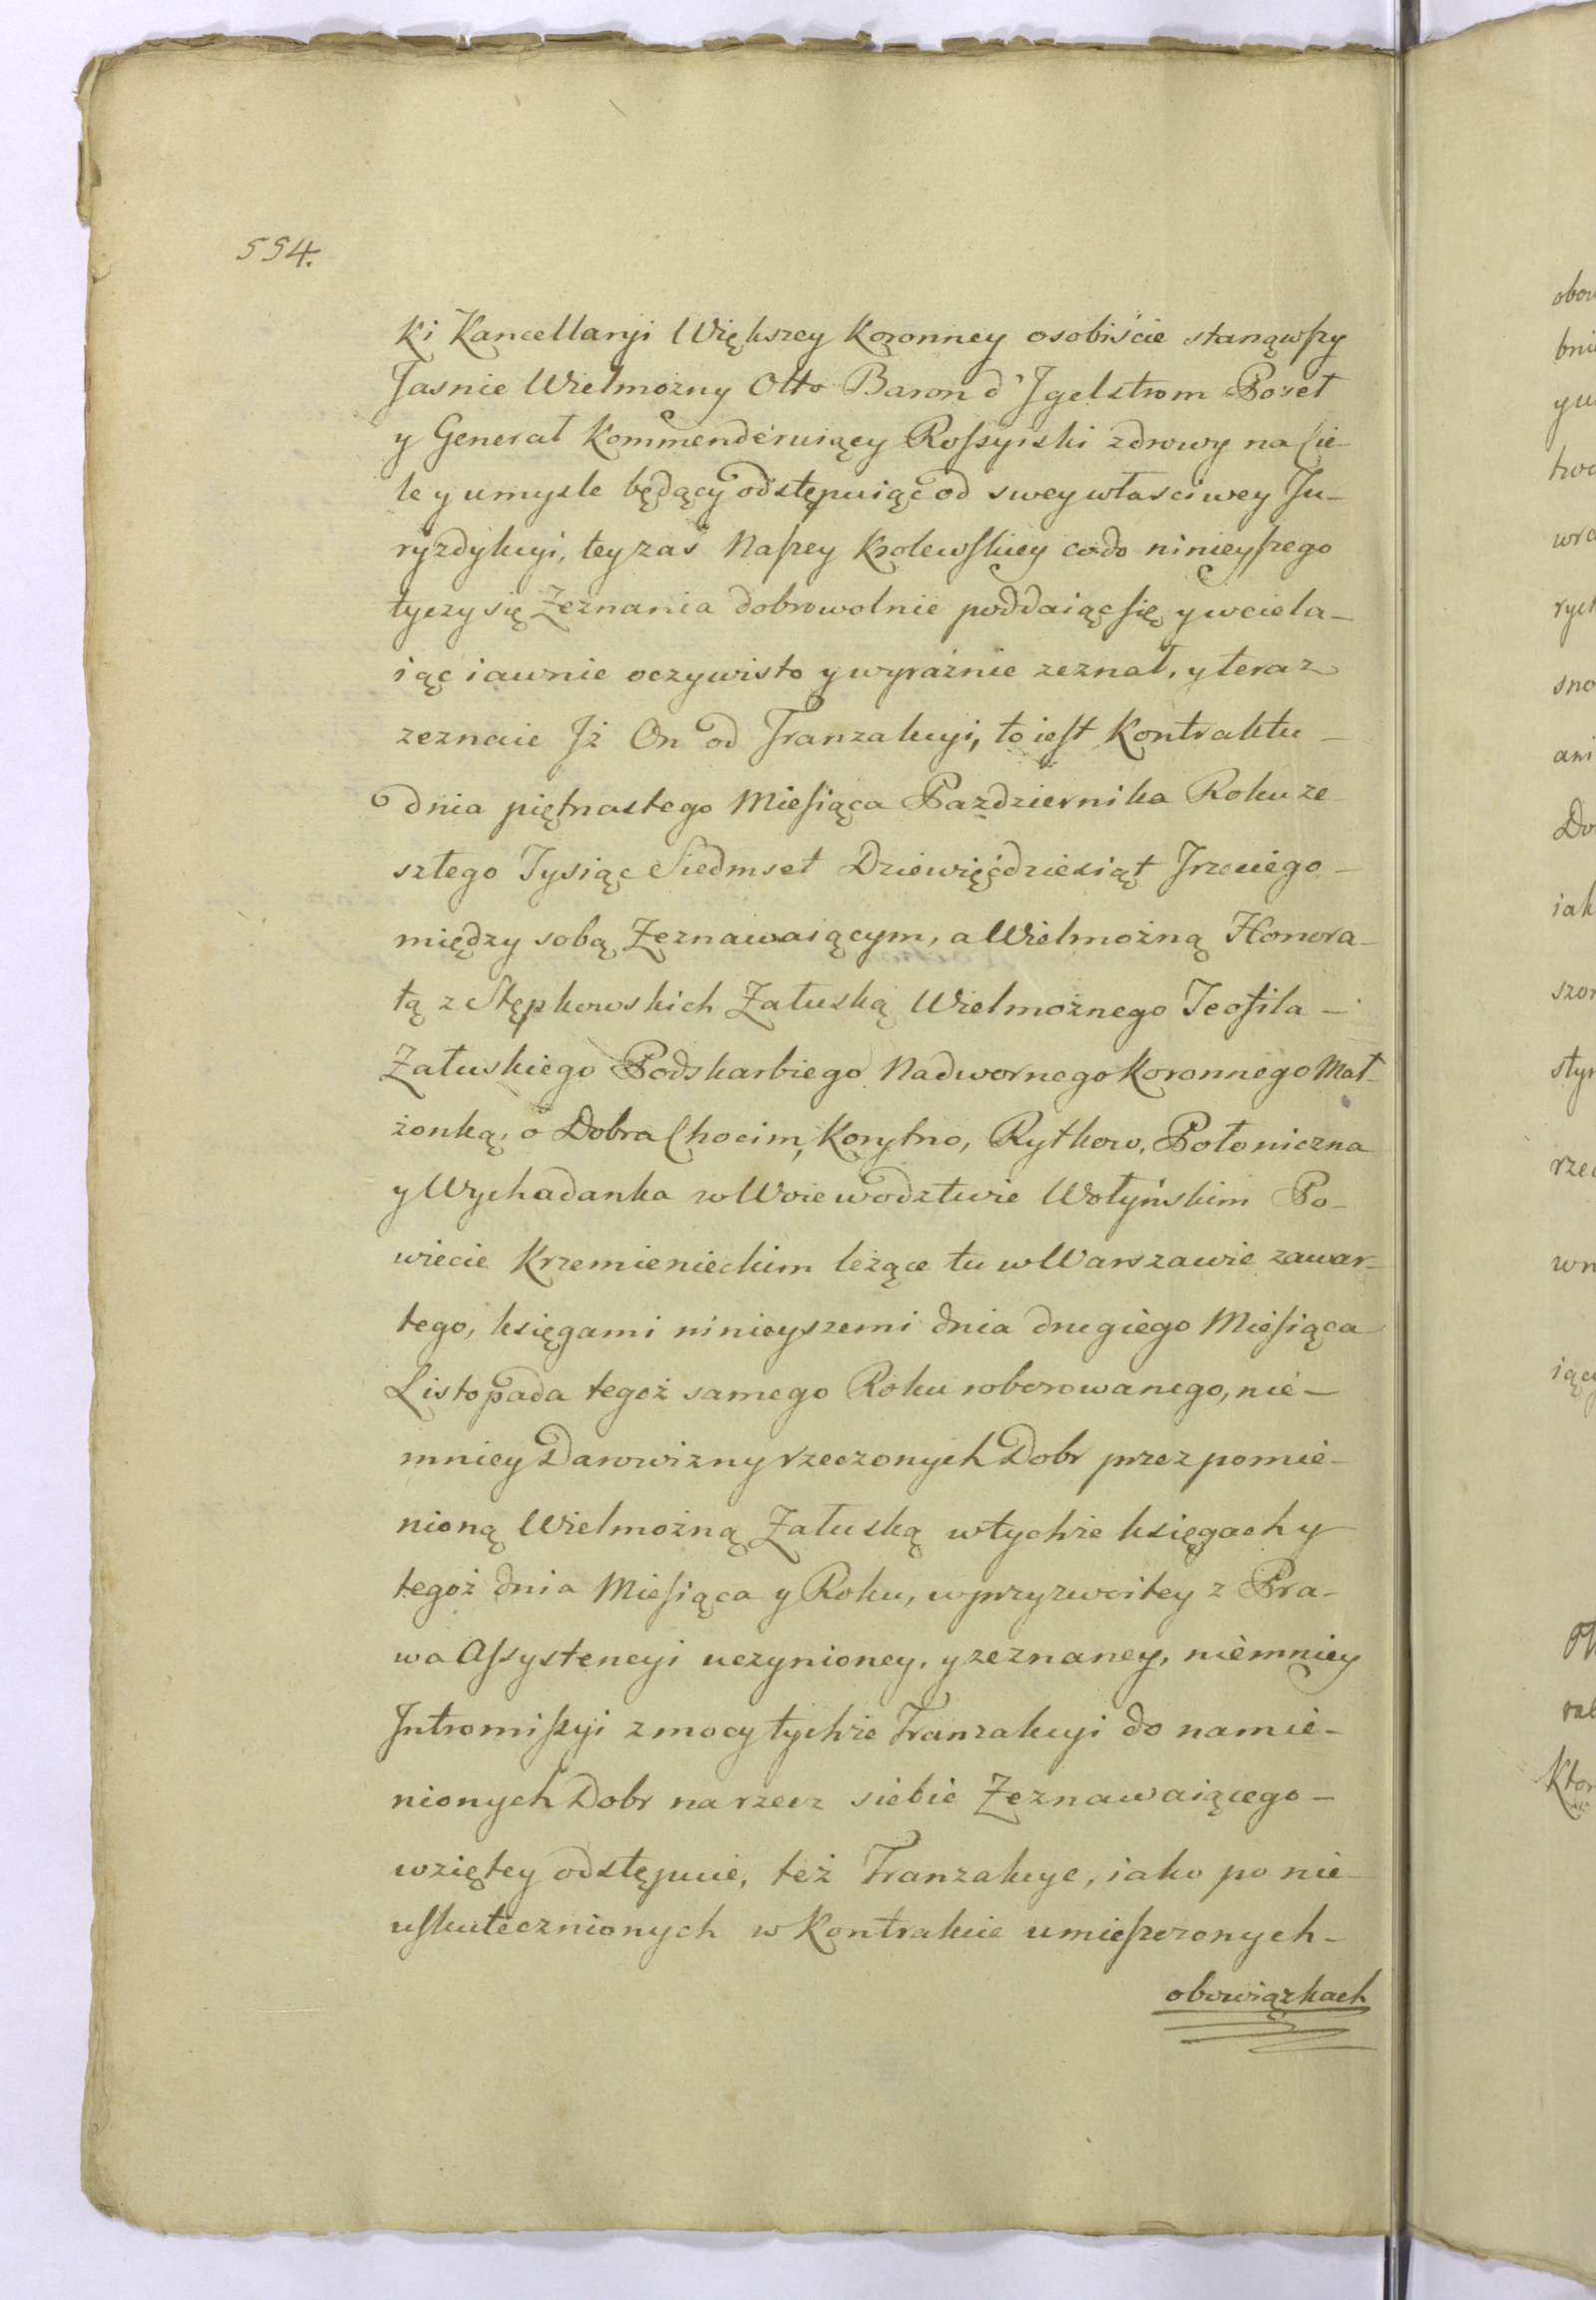 554.
ki Kancellaryi Większey Koronney osobiście stanąwszy
Jasnie Wielmożny Otto Baron d'Jgelstrom Poseł
y Generał Kommenderuiący Rossyiski zdrowy na Cie-
le y umysle będący odstępuiąc od swey własciwey Ju-
ryzdykcyi, tey zaś Naszey Krolewskiey co do ninieyszego
tyczy się Zeznania dobrowolnie poddaiąc się y wciela-
iąc iawnie oczywisto y wyraźnie zeznał, y teraz
zeznaie Jż On od Tranzakcyi, to iest Kontraktu -
dnia piętnastego Miesiąca Pazdziernika Roku ze
szłego Tysiąc Siedmset Dziewięćdziesiąt Trzeciego -
między sobą Zeznawaiącym, a Wielmożną Honora-
tą z Stępkowskich Załuską Wielmożnego Teofila -
Załuskiego Podskarbiego Nadwornego Koronnego Mał-
żonką, o Dobra Chocim, Korytno, Rytkow, Połoniczna
y Wychadanka w Woiewodztwie Wołyńskim Po-
wiecie Krzemienieckim leżące tu w Warszawie zawar-
tego, księgami ninieyszemi dnia drugiego Miesiąca
Listopada tegoż samego Roku roborowanego, nie-
mniey Darowizny rzeczonych Dobr przez pomie-
nioną Wielmożną Załuską w tychże księgach y
tegoż dnia Miesiąca y Roku, w przyzwoitey z Pra-
wa Assystencyi uczynioney, y zeznaney, niemniey
Jntromissyi z mocy tychże Tranzakcyi do namie-
nionych Dobr na rzecz siebie Zeznawaiącego -
wziętey odstępuie, też Tranzakcye, iako po nie-
uskutecznionych w Kontrakcie umieszczonych -
obowiązkach